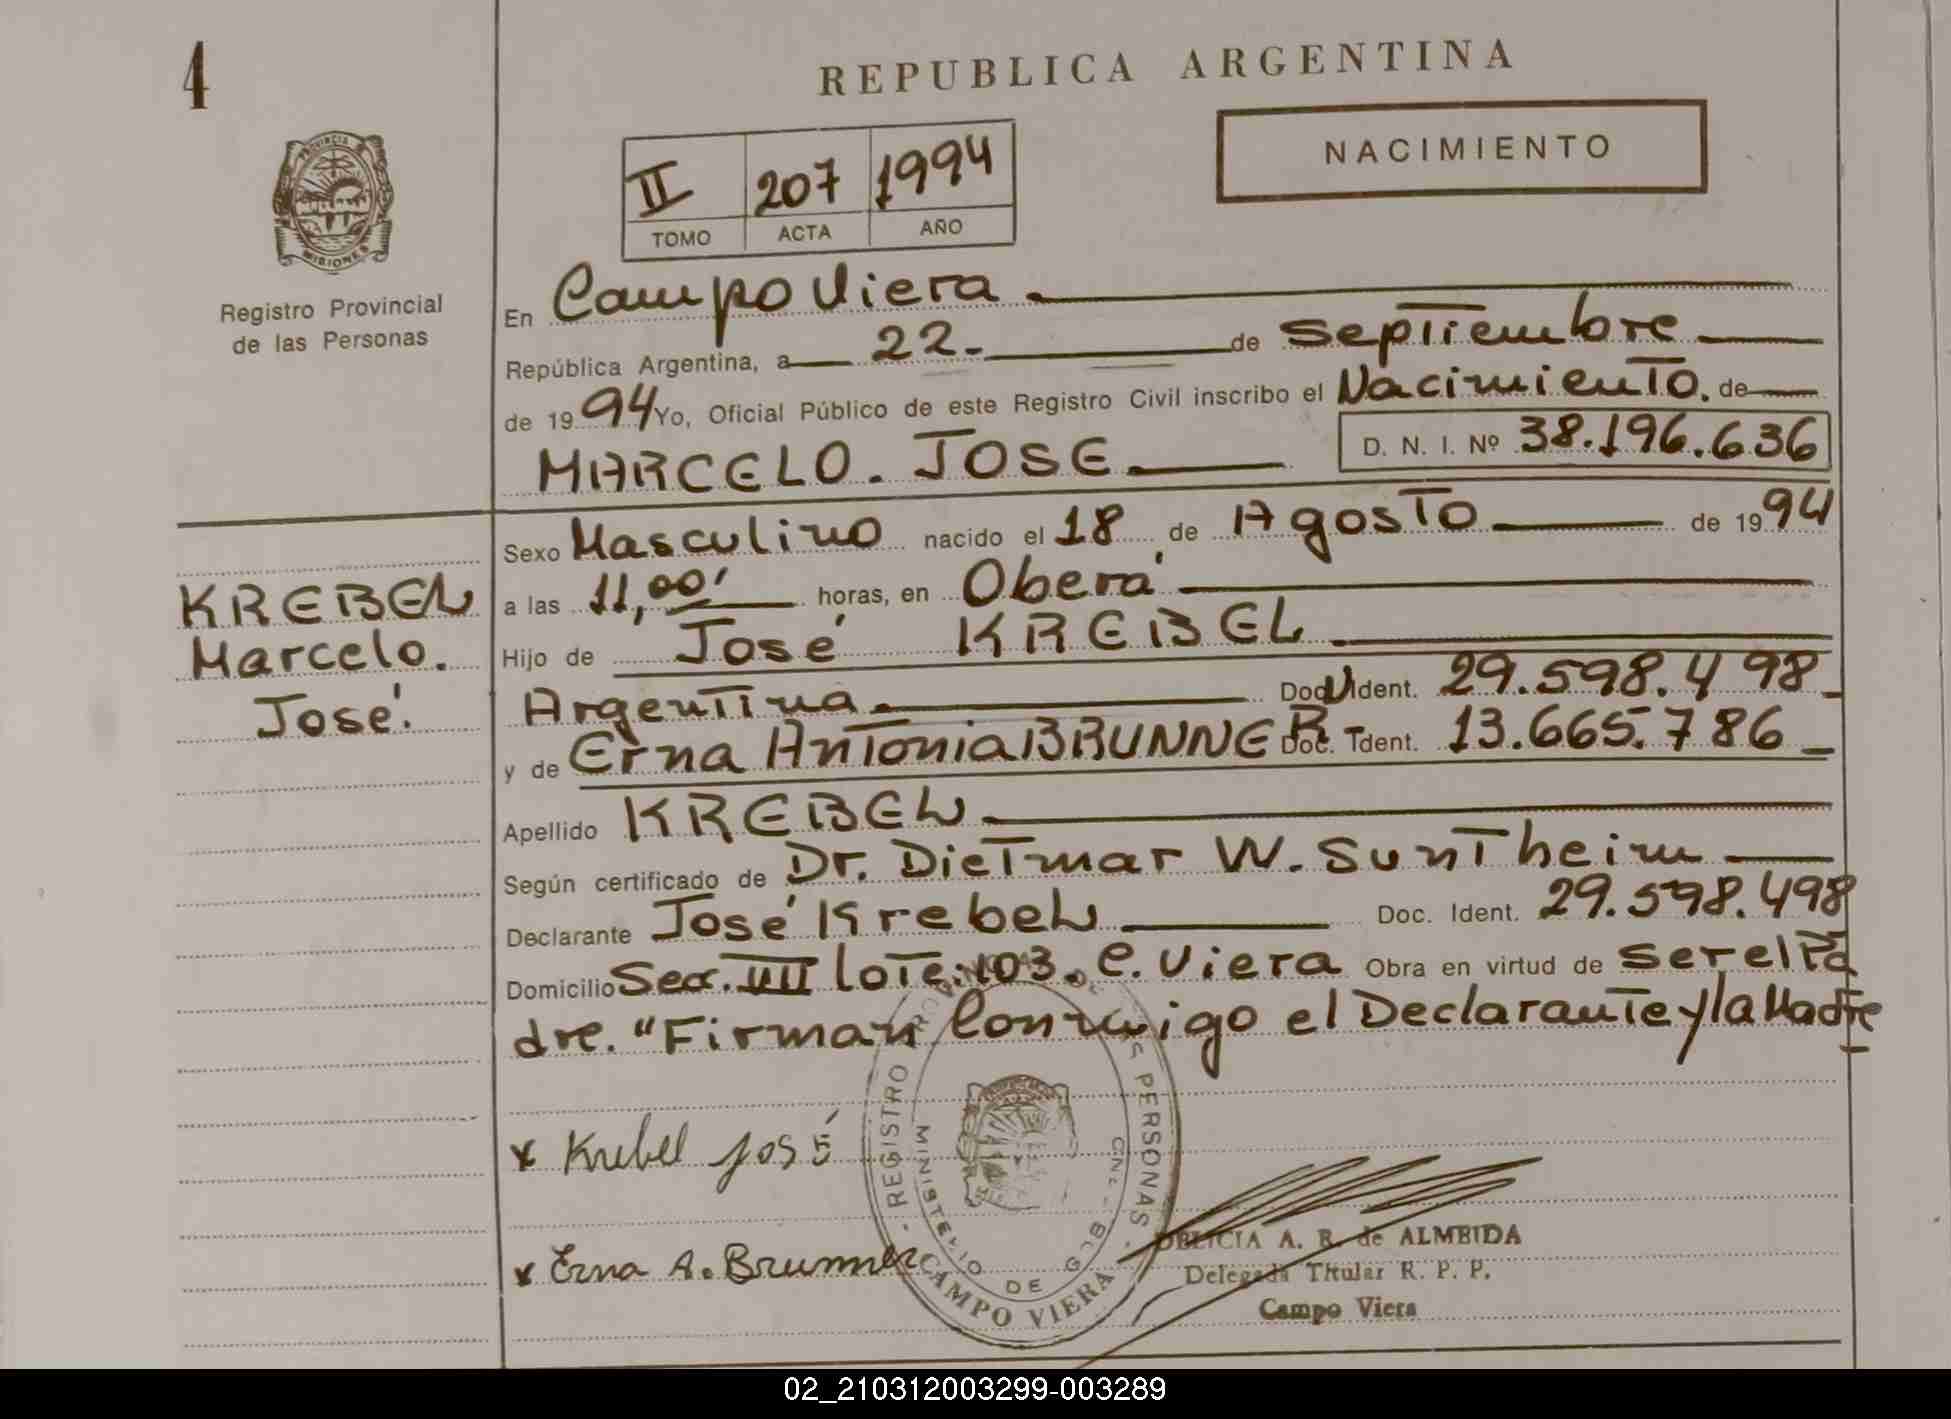 4
REPUBLICA ARGENTINA
NACIMIENTO
II 207 1994
TOMO ACTA AÑO
PROVINCIA DE
MISIONES
Registro Provincial
de las Personas
En Campo Viera.
República Argentina, a 22- de Septiembre
de 1994 Yo, Oficial Público de este Registro Civil inscribo el Nacimiento. de
MARCELO. JOSE D. N. I. Nº 38.196.636
Sexo Masculino nacido el 18 de Agosto de 1994
a las 11,00' horas, en Oberá
Hijo de José KREBEL
Argentina. Doc. Ident. 29.598.498
y de Erna Antonia BRUNNER Doc. Ident. 13.665.786
Apellido KREBEL
Según certificado de Dr. Dietmar W. Suntheim
Declarante José Krebel Doc. Ident. 29.598.498
Domicilio Sec. VII lote:103. C. Viera Obra en virtud de ser el Pa
dre. "Firman Conmigo el Declarante y la Madre
KREBEL
Marcelo.
José.
x Krebel José
x Erna A. Brunner
REGISTRO PROVINCIAL DE LAS PERSONAS
MINISTERIO DE GOB
CAMPO VIERA
DELICIA A. R. de ALMEIDA
Delegada Titular R. P. P.
Campo Viera
02_210312003299-003289